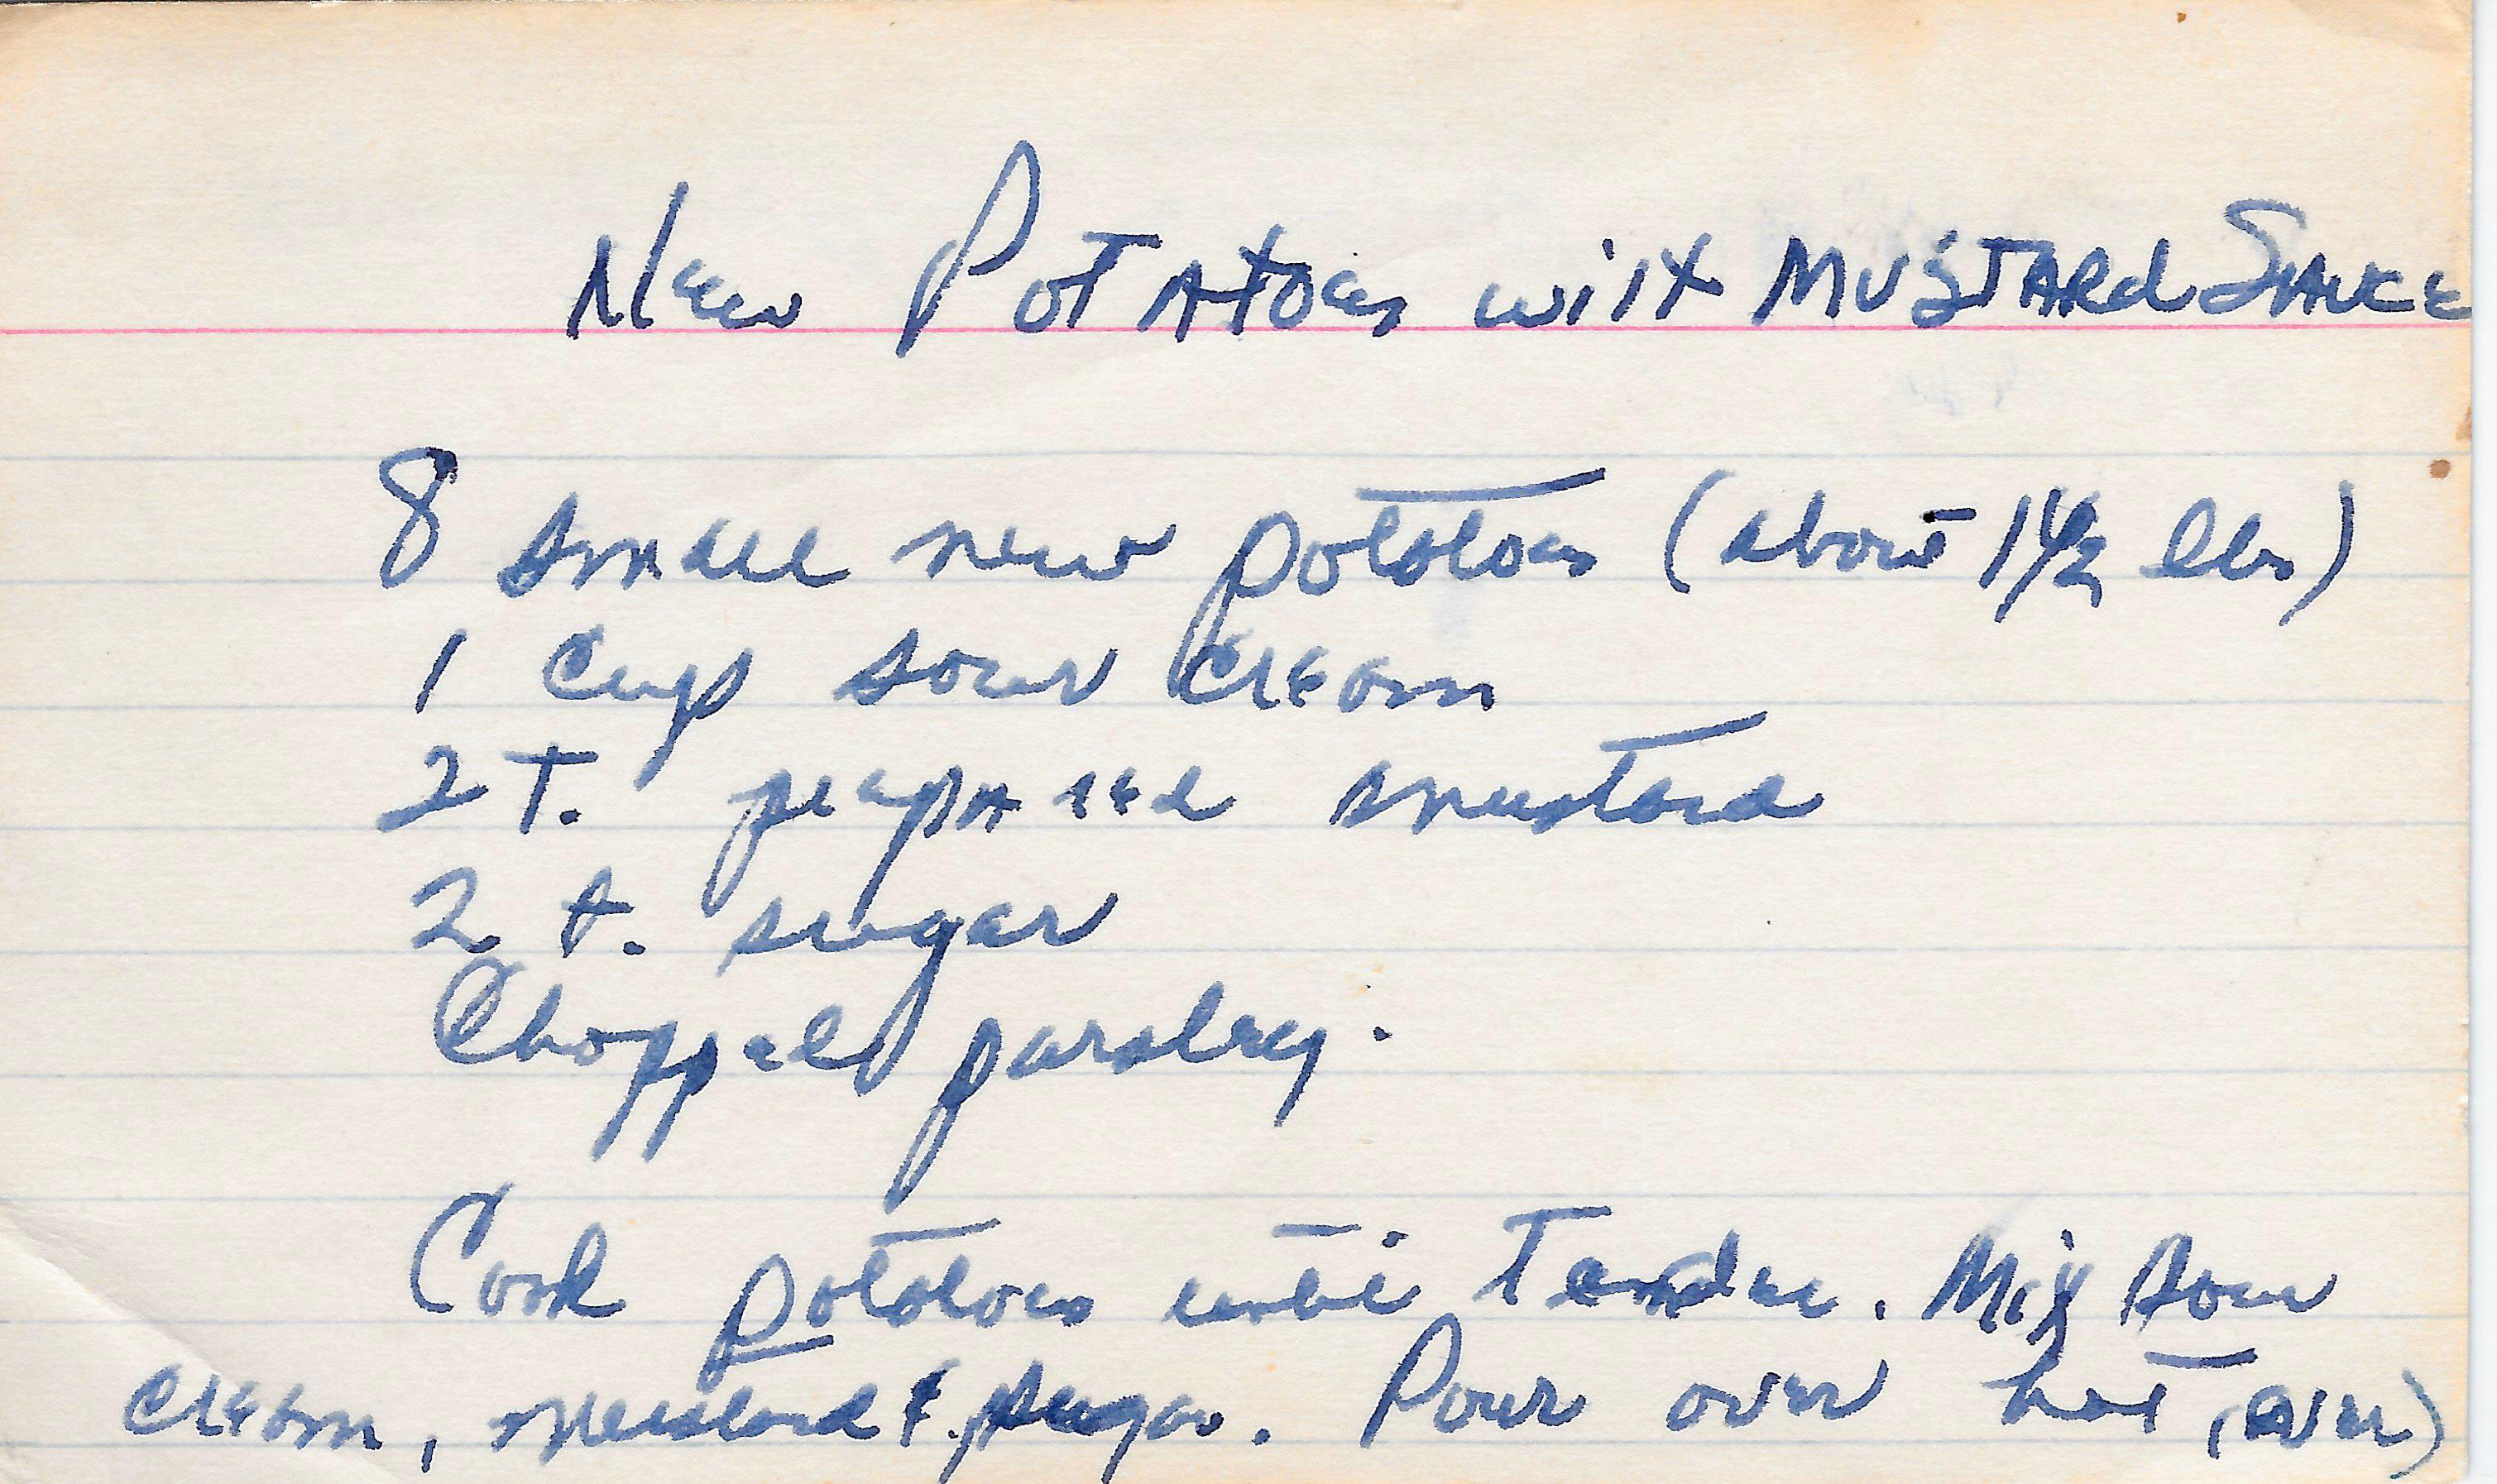 New Potatoes with Mustard Sauce
8 small new potatoes (about 1 1/2 lbs)
1 cup sour cream
2 T. prepared mustard
2 t. sugar
Chopped parsley.
Cook potatoes until Tender. Mix sour
cream, mustard & sugar. Pour over hot (over)